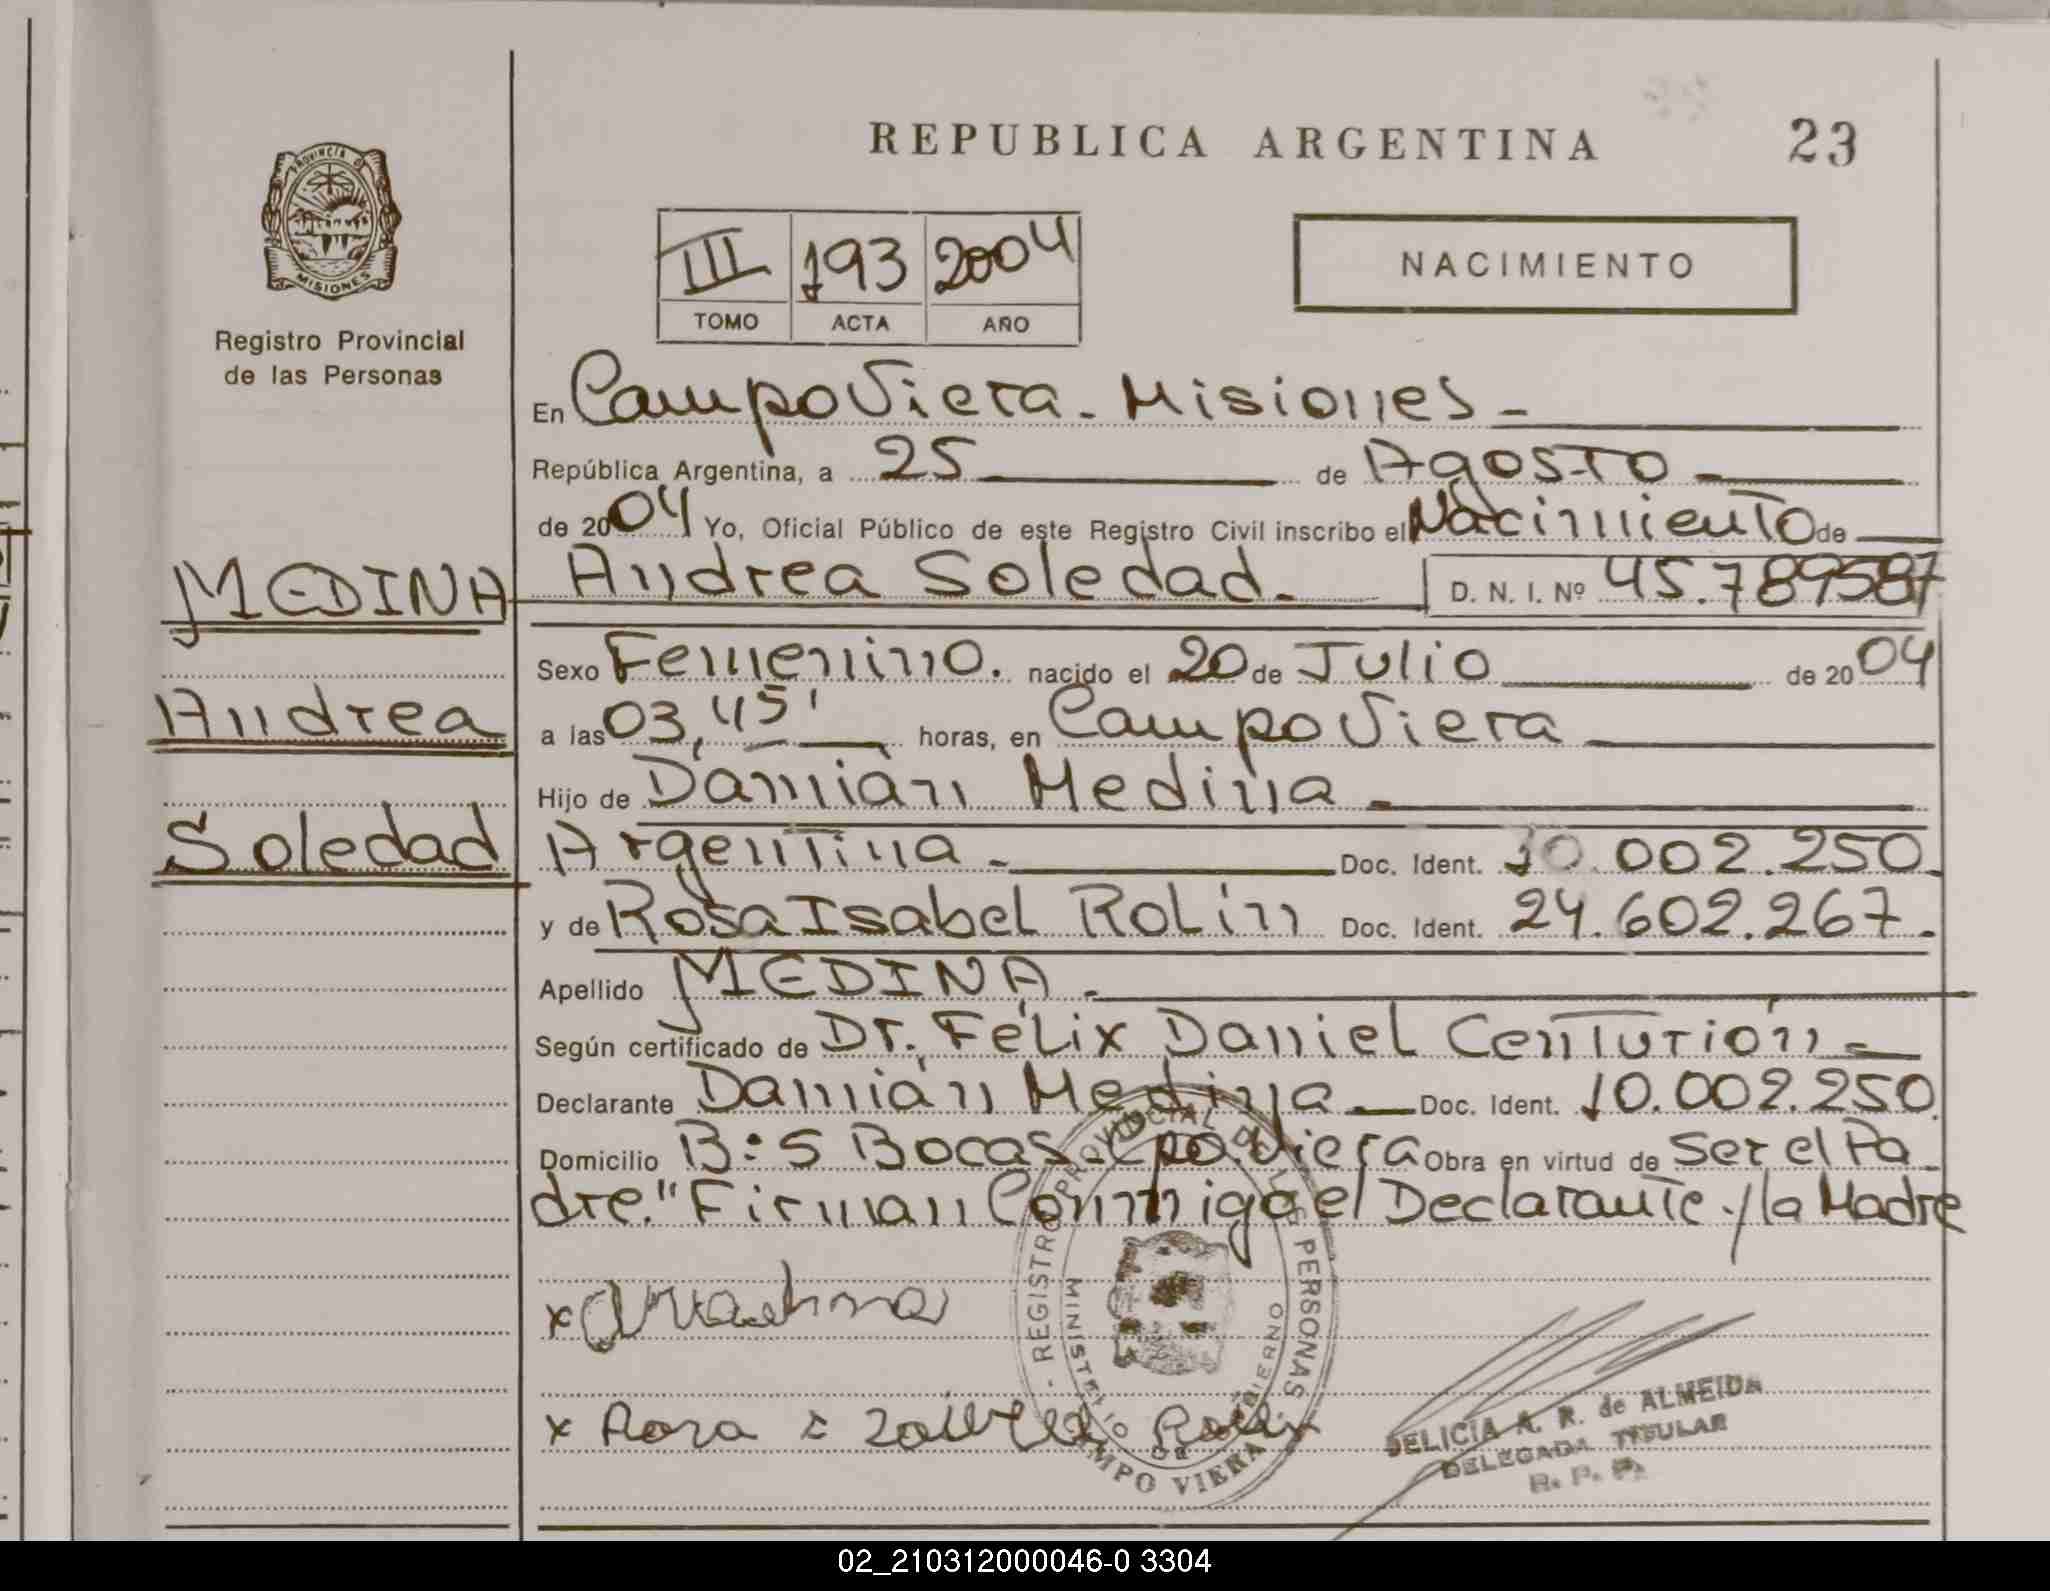 REPUBLICA ARGENTINA
23
PROVINCIA D
MISIONES
Registro Provincial
de las Personas
III 193 2004
TOMO ACTA AÑO
NACIMIENTO
En Campo Viera - Misiones -
República Argentina, a 25 de Agosto -
de 2004 Yo, Oficial Público de este Registro Civil inscribo el Nacimiento de
MEDINA Andrea Soledad. D. N. I. Nº 45.789587
Sexo Femenino. nacido el 20 de Julio de 2004
Andrea
a las 03,45' horas, en Campo Viera
Hijo de Damián Medina -
Soledad
Argentina - Doc. Ident. 10.002.250.
y de Rosa Isabel Rolin Doc. Ident. 24.602.267.
Apellido MEDINA.
Según certificado de Dr. Félix Daniel Centurión -
Declarante Damián Medina - Doc. Ident. 10.002.250.
Domicilio B: 5 Bocas - Cpo. Viera Obra en virtud de Ser el Pa
dre." Firman Conmigo el Declarante y la Madre
x
x Rosa Rolin
REGISTRO PROVINCIAL DE LAS PERSONAS
MINISTERIO DE GOBIERNO
CAMPO VIERA
DELICIA A. R. de ALMEIDA
DELEGADA TITULAR
R. P. P.
02_210312000046-0 3304